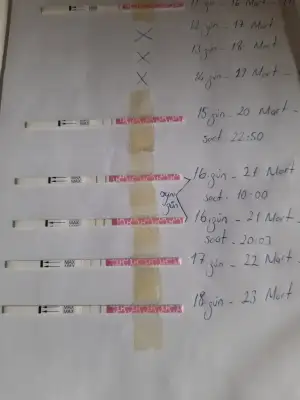 11 gün - 16 Mart
12 gün - 17 Mart
13 gün - 18 Mart
14 gün - 19 Mart -
15 gün - 20 Mart
saat 22:50
16. gün - 21 Mart
saat. 10:00
aynı gün
16. gün - 21 Mart
saat - 20:03
17 gün - 22 Mart -
18. gün - 23 Mart